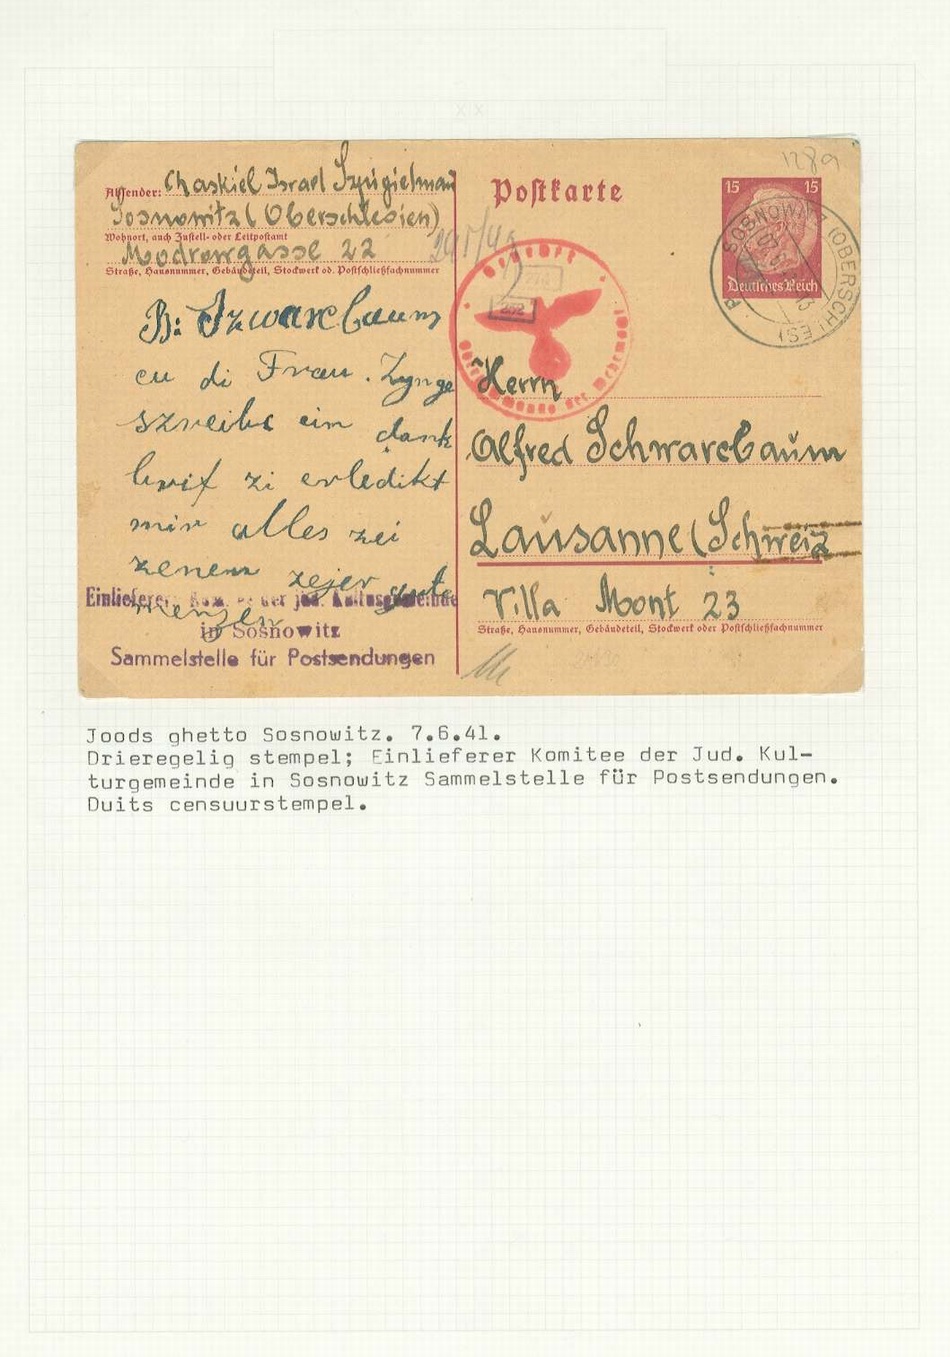 1289
Absender: Chaskiel Israel Szpigielman
Sosnowitz (Oberschlesien)
Wohnort, auch Zustell- oder Leitpostamt
Modrowgasse 22
Straße, Hausnummer, Gebäudeteil, Stockwerk od. Postschließfachnummer
Postkarte
15 15
Deutsches Reich
SOSNOWITZ (OBERSCHLES)
Geprüft
Oberkommando der Wehrmacht
B: Szwarcbaum
cu di Frau. Zynge
szreibt ein dank
brif zi erledikt
mir alles zei
zenen zejer gute
menzen
Einlieferer: Kom. der jüd. Kultusgemeinde
in Sosnowitz
Sammelstelle für Postsendungen
Herrn
Alfred Schwarcbaum
Lausanne (Schweiz
Villa Mont 23
Straße, Hausnummer, Gebäudeteil, Stockwerk oder Postschließfachnummer
Joods ghetto Sosnowitz. 7.6.41.
Drieregelig stempel; Einlieferer Komitee der Jud. Kul-
turgemeinde in Sosnowitz Sammelstelle für Postsendungen.
Duits censuurstempel.